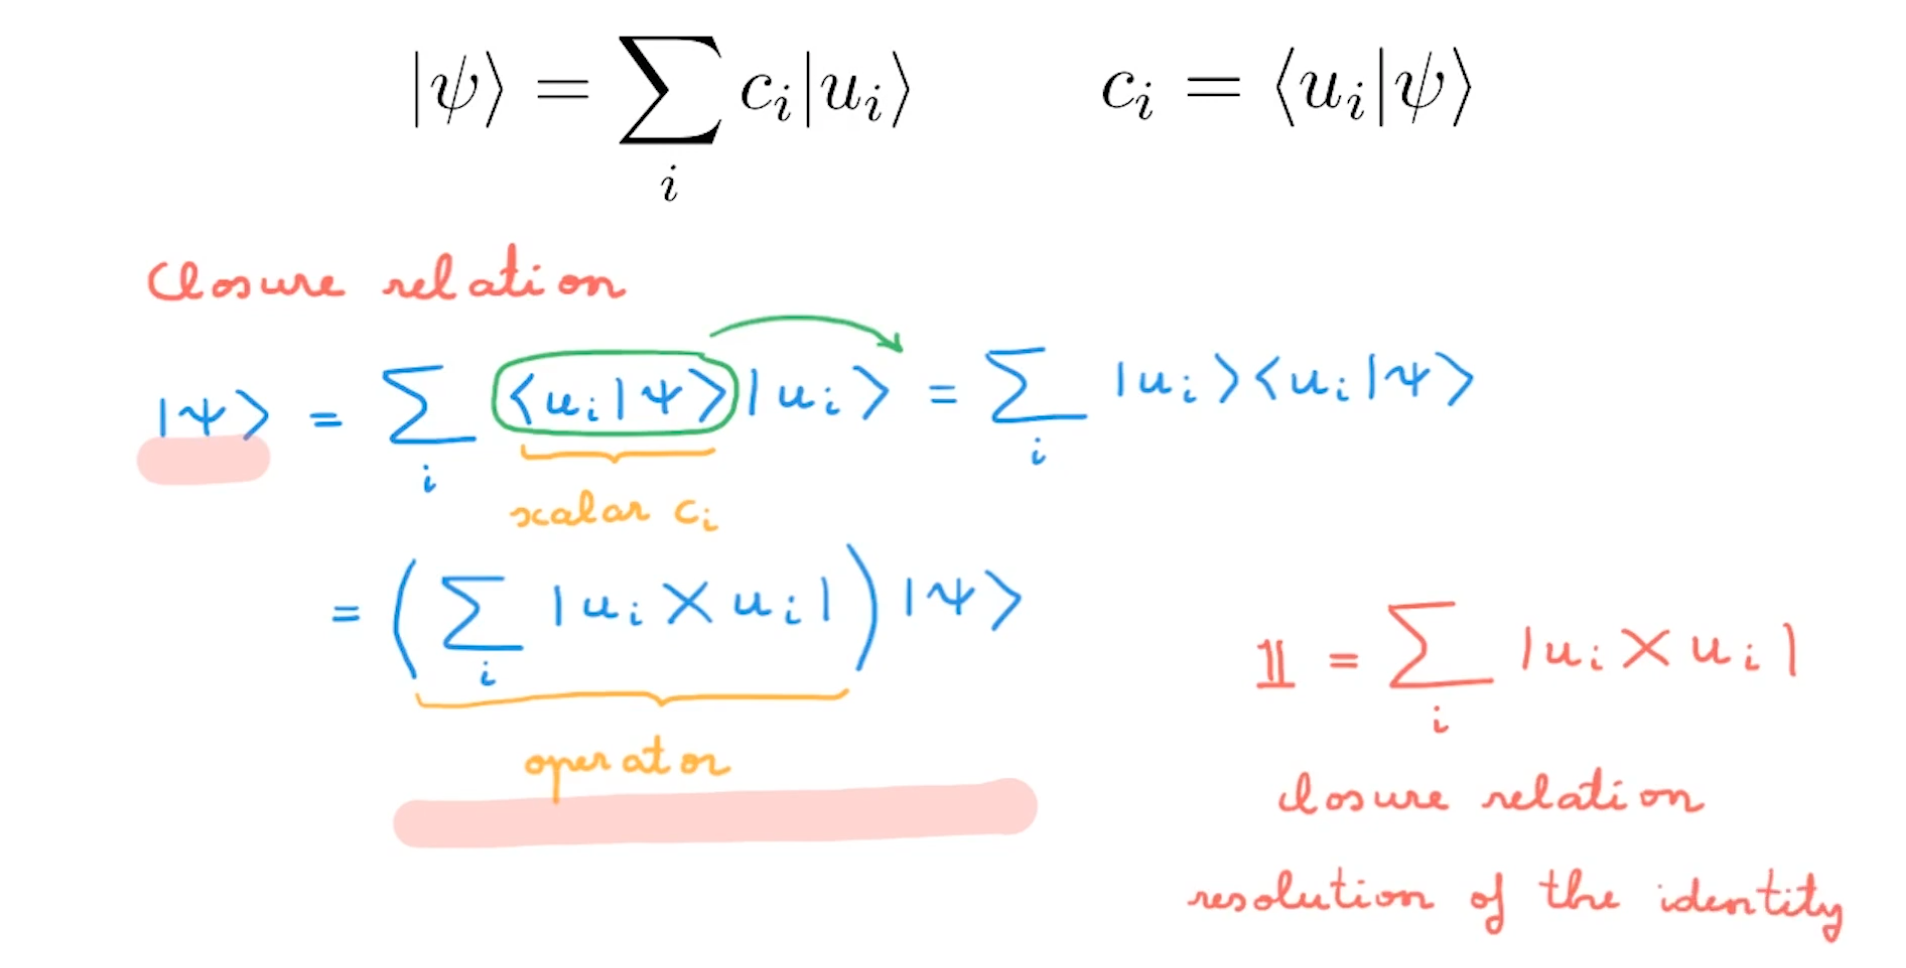 |ψ⟩ = ∑_i c_i|u_i⟩    c_i = ⟨u_i|ψ⟩
Closure relation
|ψ⟩ = ∑_i ⟨u_i|ψ⟩|u_i⟩ = ∑_i |u_i⟩⟨u_i|ψ⟩
scalar c_i
= (∑_i |u_i⟩⟨u_i|)|ψ⟩
operator
𝟙 = ∑_i |u_i⟩⟨u_i|
closure relation
resolution of the identity